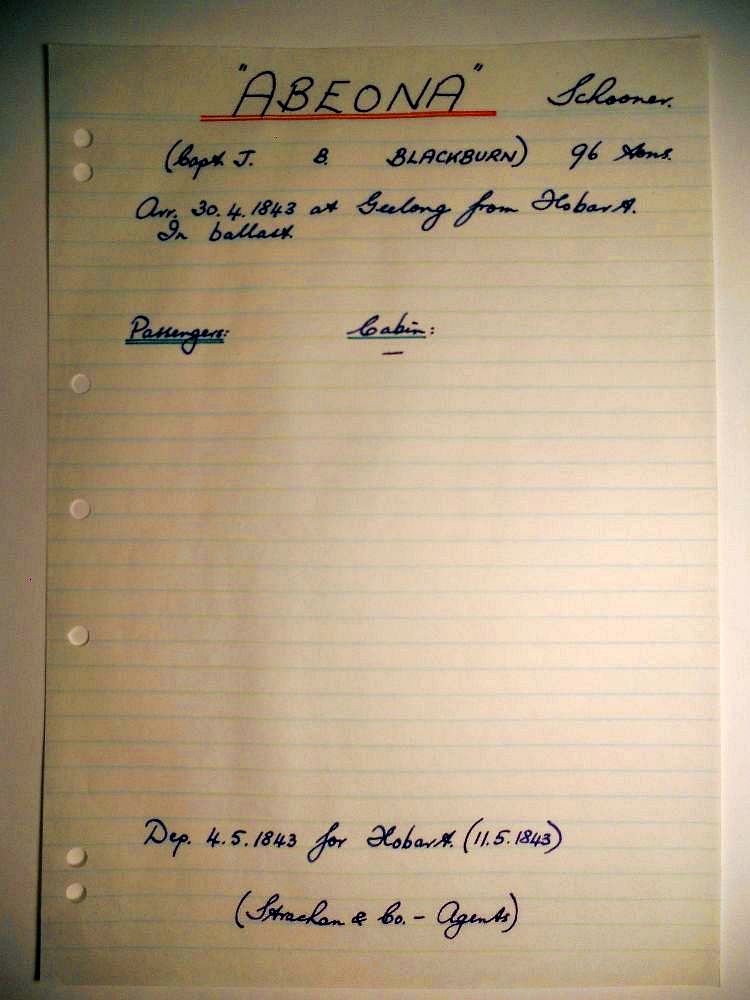 "ABEONA" Schooner.
(Capt J. B. BLACKBURN) 96 tons.
Arr. 30.4.1843 at Geelong from Hobart.
In ballast.
Passengers: Cabin:
—
Dep. 4.5.1843 for Hobart. (11.5.1843)
(Strachan & Co. - Agents)